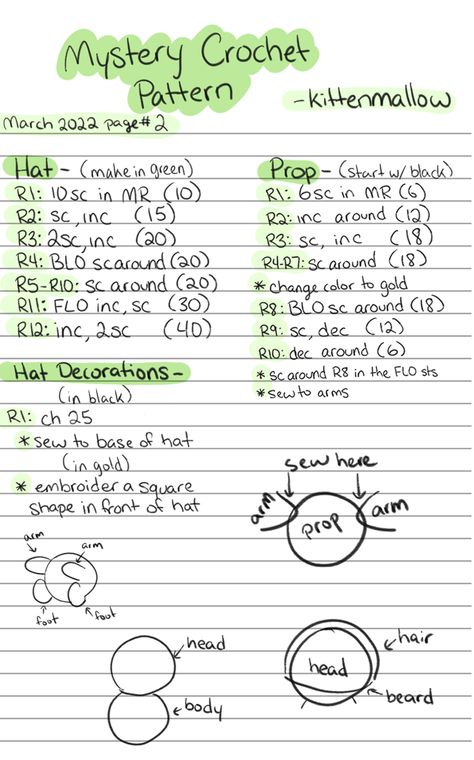 Mystery Crochet
Pattern
-kittenmallow
March 2022 page#2
Hat - (make in green)
R1: 10sc in MR (10)
R2: sc, inc (15)
R3: 2sc, inc (20)
R4: BLO sc around (20)
R5-R10: sc around (20)
R11: FLO inc, sc (30)
R12: inc, 2sc (40)
Hat Decorations-
(in black)
R1: ch 25
*sew to base of hat
(in gold)
* embroider a square
shape in front of hat
Prop- (start w/ black)
R1: 6sc in MR (6)
R2: inc around (12)
R3: sc, inc (18)
R4-R7: sc around (18)
* change color to gold
R8: BLO sc around (18)
R9: sc, dec (12)
R10: dec around (6)
* sc around R8 in the FLO sts
*sew to arms
sew here
arm
prop
arm
arm
arm
foot
foot
head
body
hair
head
beard